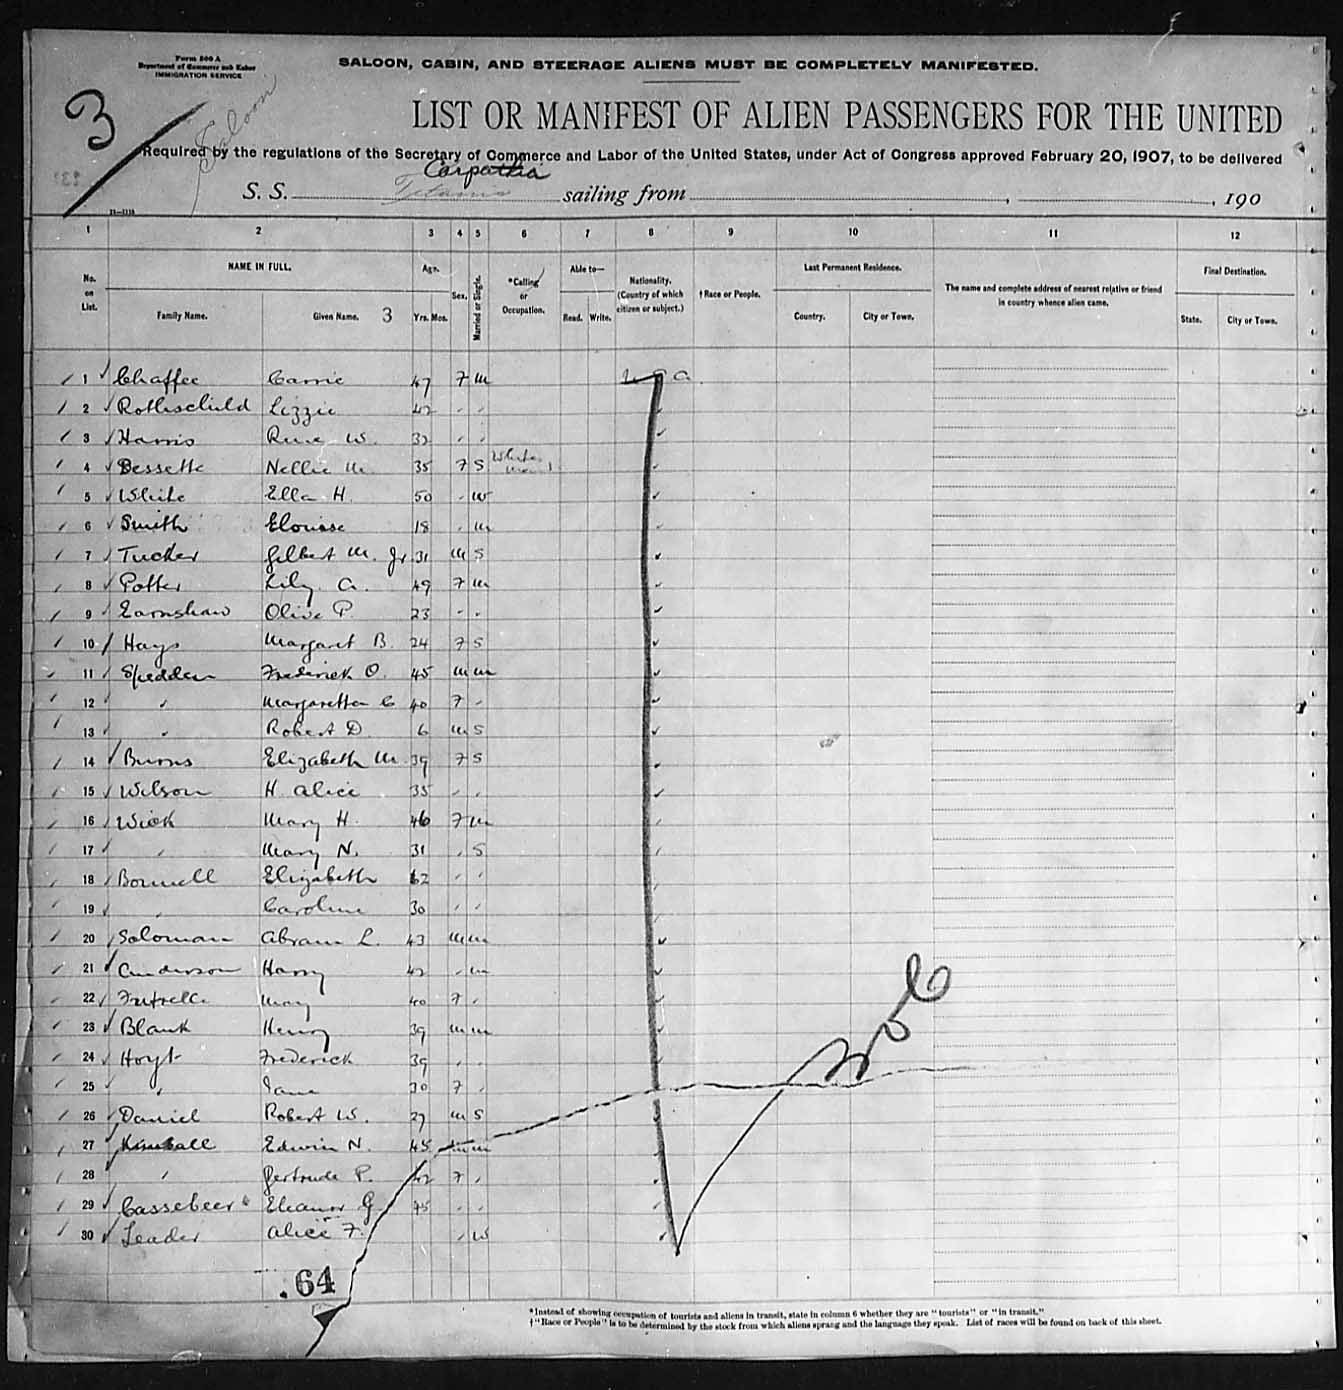 Form 500 A
Department of Commerce and Labor
IMMIGRATION SERVICE
SALOON, CABIN, AND STEERAGE ALIENS MUST BE COMPLETELY MANIFESTED.
3
Saloon
LIST OR MANIFEST OF ALIEN PASSENGERS FOR THE UNITED
Required by the regulations of the Secretary of Commerce and Labor of the United States, under Act of Congress approved February 20, 1907, to be delivered
Carpathia
S. S. Titanic sailing from , , 190
1 2 3 4 5 6 7 8 9 10 11 12
No. on List. NAME IN FULL. Age. Sex. Married or Single. *Calling or Occupation. Able to— Nationality. (Country of which citizen or subject.) †Race or People. Last Permanent Residence. The name and complete address of nearest relative or friend in country whence alien came. Final Destination.
Family Name. Given Name. 3 Yrs. Mos. Read. Write. Country. City or Town. State. City or Town.
1 Chaffee Carrie 47 F M U S a
2 Rothschild Lizzie 42 " "
3 Harris Rene W. 32 " "
4 Bessette Nellie M. 35 F S White maid
5 White Ella H. 50 " W
6 Smith Elouise 18 " M
7 Tucker Gilbert M. Jr. 31 M S
8 Potter Lily A. 49 F M
9 Earnshaw Olive P. 23 " "
10 Hays Margaret B. 24 F S
11 Spedden Frederick O. 45 M M
12 " Margaretta C 40 F "
13 " Robert D. 6 M S
14 Burns Elizabeth M. 39 F S
15 Wilson H. Alice 35 " "
16 Wick Mary H. 46 F M
17 " Mary N. 31 " S
18 Bonnell Elizabeth 62 " "
19 " Caroline 30 " "
20 Soloman Abram L. 43 M M
21 Anderson Harry 42 " M
22 Futrelle May 40 F "
23 Blank Henry 39 M M
24 Hoyt Frederick 39 " "
25 " Jane 30 F "
26 Daniel Robert W. 27 M S
27 Kimball Edwin N. 45 M M
28 " Gertrude P. 42 F "
29 Cassebeer Eleanor G. " "
30 Leader Alice F. " W
.64
*Instead of showing occupation of tourists and aliens in transit, state in column 6 whether they are "tourists" or "in transit."
†"Race or People" is to be determined by the stock from which aliens sprang and the language they speak. List of races will be found on back of this sheet.